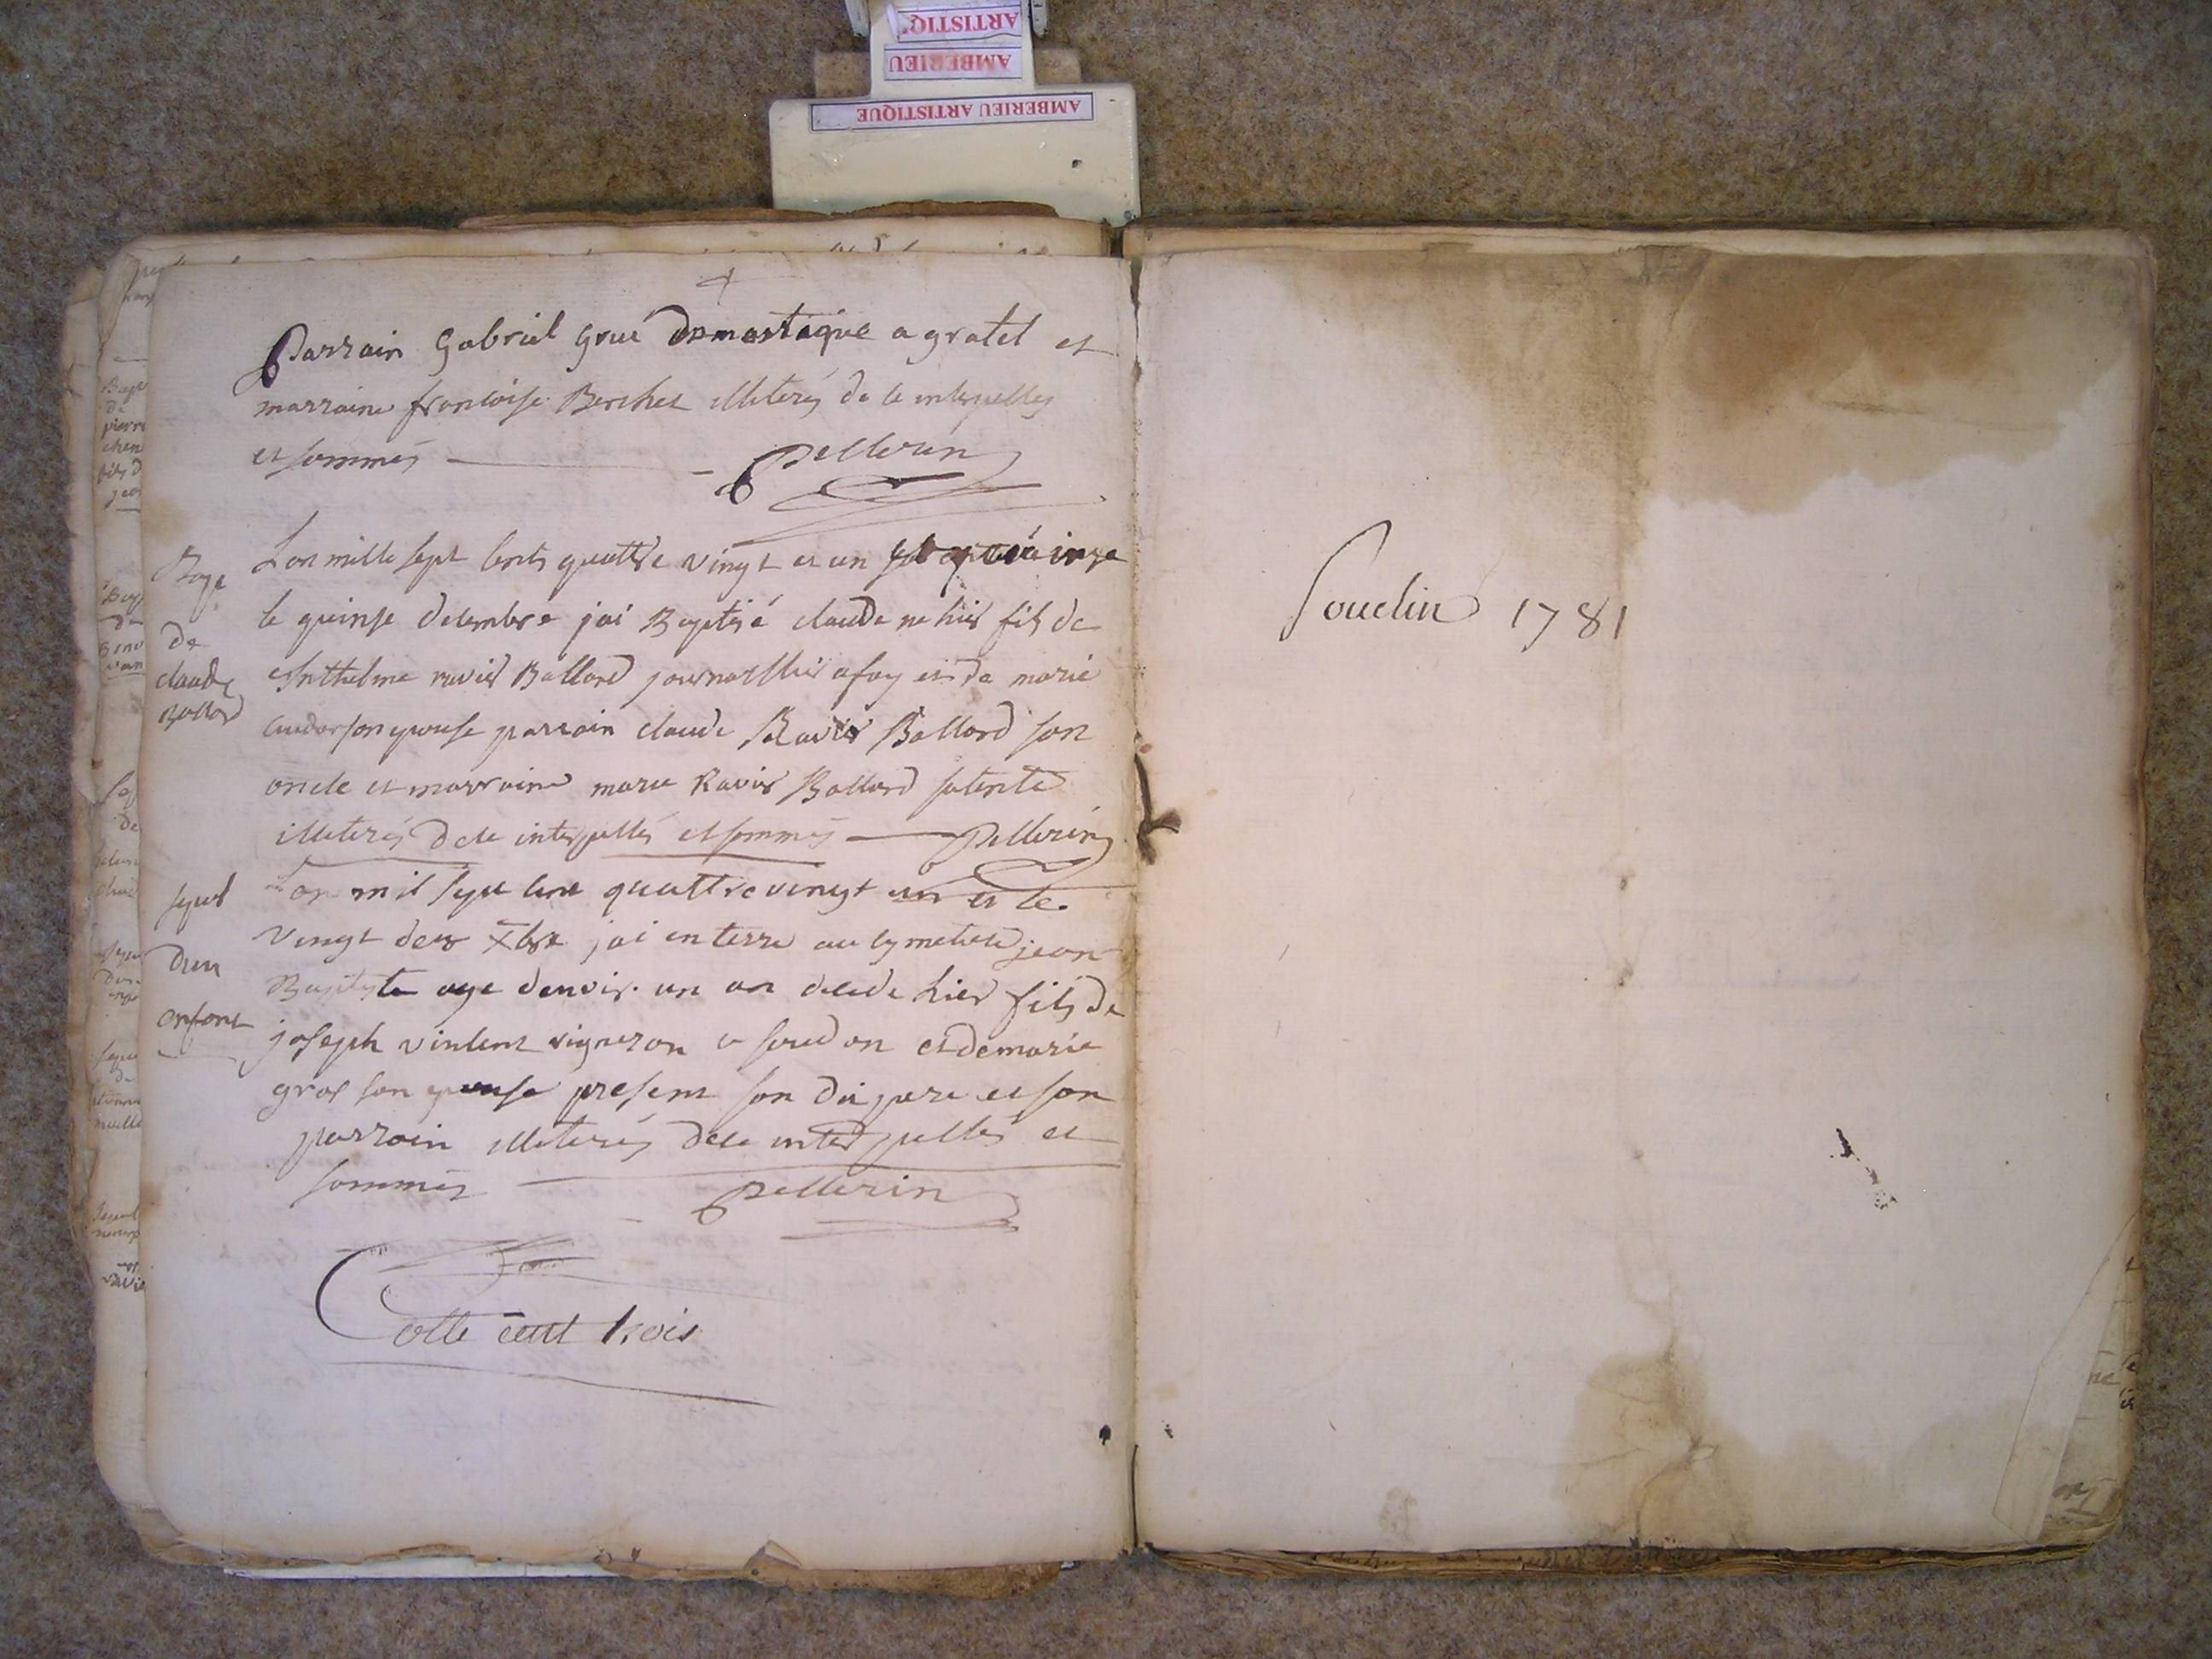 ARTISTIQ
AMBERIEU
AMBERIEU ARTISTIQUE
Parrain Gabriel Grué domestique a gratel et
marraine francoise Berchet illiterés de ce interpelles
et sommés Pellerin
Bapt
de
claude
Ballard
L'an mille sept cents quattre vingt et un
le quinse decembre jai Baptisé claude ne hier fils de
Anthelme ravier Ballard journallier a foy et de marie
son epouse parrain claude Ravier Ballard son
oncle et marraine marie Ravier Ballard sa tente
illiterés de ce interpellés et sommés Pellerin
sepul
dun
enfant
L'an mil sept cent quattre vingt un et le
vingt deux Xbre jai enterre au cymetiere jean
Baptiste age denvir. un an decede hier fils de
joseph vincent vigneron a soudon et de marie
gros son epouse present son dit pere et son
parrain illiterés de ce interpellés et
sommés Pellerin
Cotte cent trois
Souclin 1781